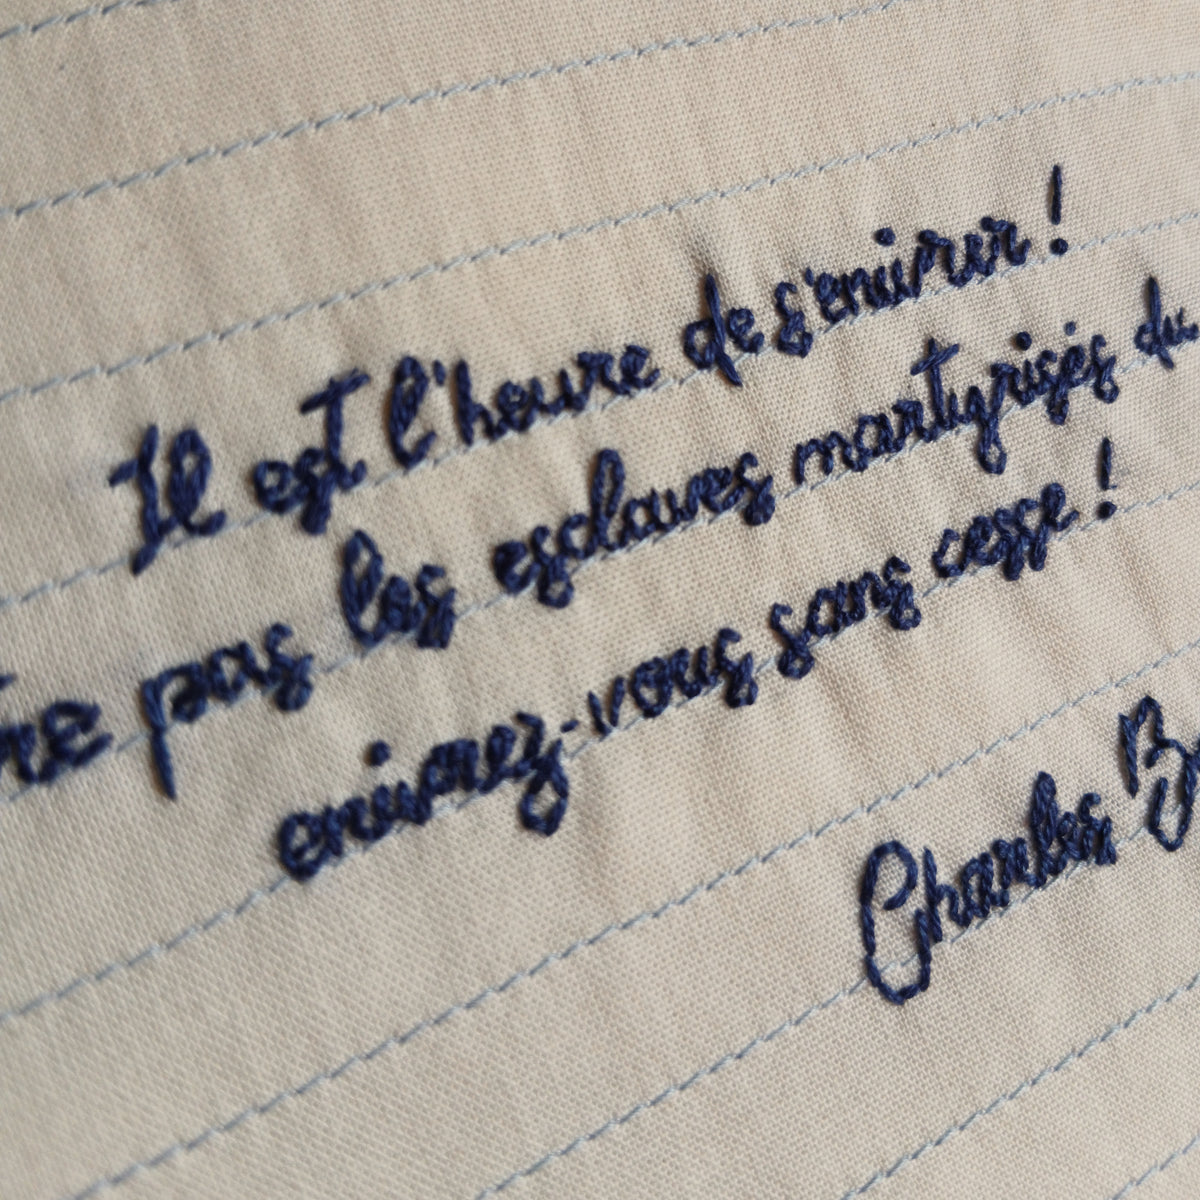 Il est l'heure de s'enivrer !
re pas les esclaves martyrisés du
enivrez-vous sans cesse !
Charles B